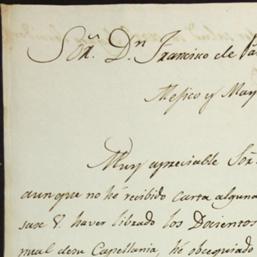 Sor. Dn. Francisco de
Mexico y May
Muy apreciable Sor.
aunque no hé recibido carta alguna
V. haver librado los Docientos
Capellania, hé obsequiado